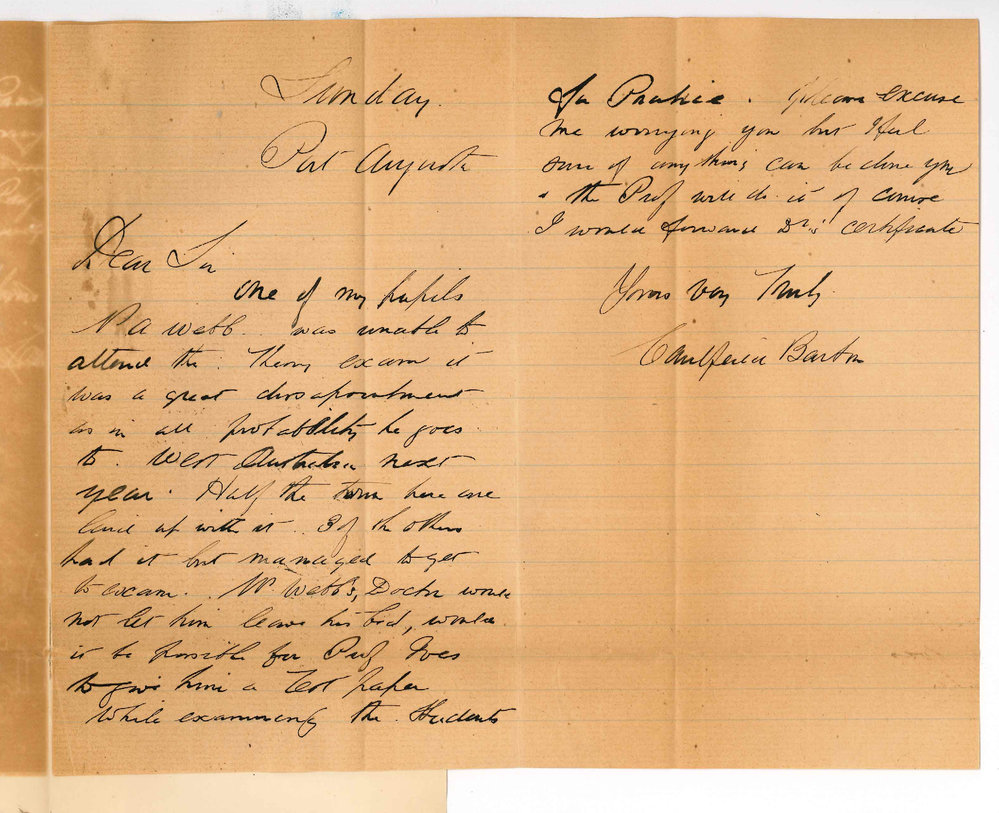 Sunday.
Port Augusta
Dear Sir
One of my pupils
A Webb. was unable to
attend the Theory exam it
was a great dissapointment
as in all probability he goes
to West Australia next
year. Half the town here are
laid up with it. 3 of the others
had it but managed to get
to exam. Mr Webb's, Doctor would
not let him leave his bed, would
it be possible for Prof Ives
to give him a Test paper
while examining the Students
for Practice. Please excuse
me worrying you but I feel
sure if anything can be done you
& the Prof will do it of course
I would forward Dr's certificate
Yours very Truly.
Caulfield Barton